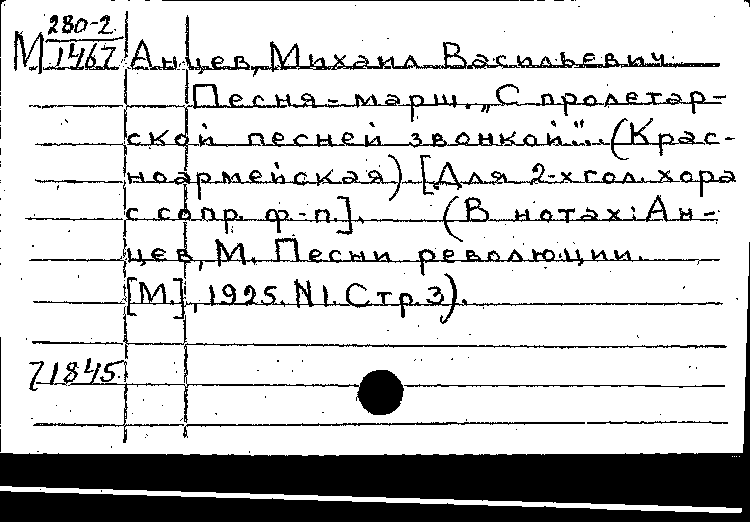 280-2
М 1467 Анцев, Михаил Васильевич.
Песня-марш. „С пролетар-
ской песней звонкой"... (Крас-
ноармейская). [Для 2-х гол. хора
с сопр. ф-п.]. (В нотах: Ан-
цев, М. Песни революции.
[М.], 1925. N1. Стр. 3).
71845